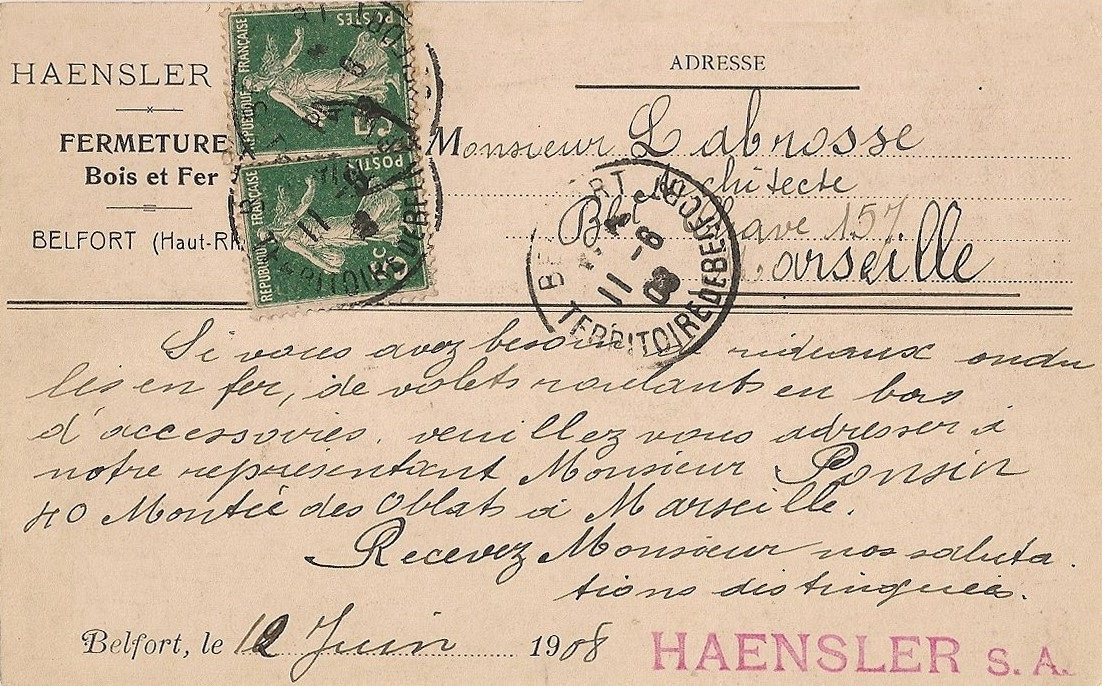 HAENSLER
FERMETURE
Bois et Fer
BELFORT (Haut-R
RÉPUBLIQUE FRANÇAISE
POSTES
5c
RÉPUBLIQUE FRANÇAISE
POSTES
5c
TERRITOIRE
11 -6
ADRESSE
Monsieur Labrosse
Architecte
Bd ave 157
Marseille
BELFORT
11 -6
08
TERRITOIRE DE BELFORT
Si vous avez besoin rideaux ondu
lés en fer, de volets roulants en bois
d'accessoires. veuillez vous adresser à
notre représentant Monsieur Ponsin
40 Montée des Oblats à Marseille.
Recevez Monsieur nos saluta
tions distinguées.
Belfort, le Juin 1908
HAENSLER S. A.